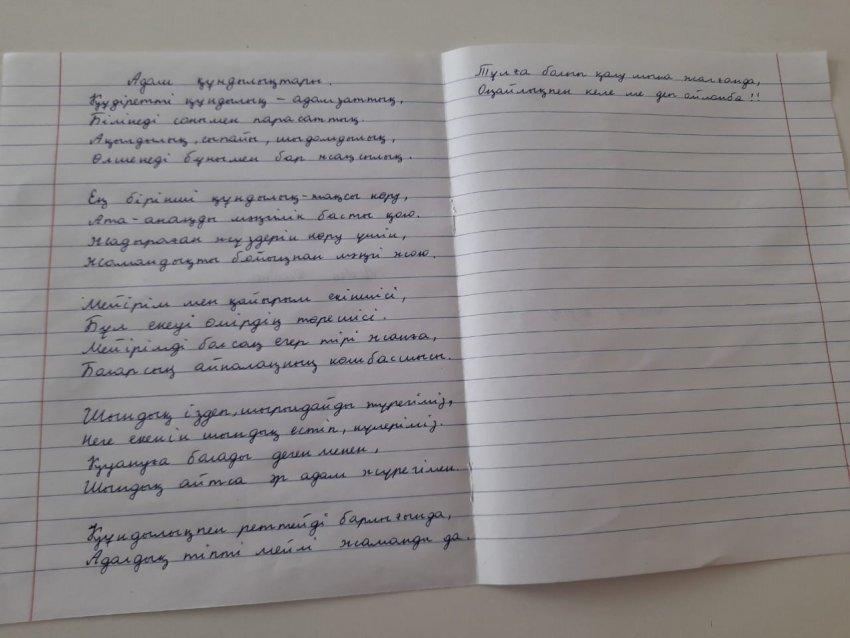 Адам құндылықтары.
Құдіретті құндылық - адамзаттық,
Білінеді сонымен парасаттық.
Ақылдылық, сыпайы, шыдамдылық,
Өлшенеді бұнымен бар жақсылық.
Ең бірінші құндылық - жақсы көру,
Ата-анаңды мәңгілік басты қою.
Жадыраған жүздерін көру үшін,
Жамандықты бойыңнан мәңгі жою.
Мейірім мен қайырым екіншісі,
Бұл екеуі өмірдің төрешісі.
Мейірімді болсаң егер тірі жанға,
Боларсың айналаңның қолбасшысы.
Шындық іздеп, шырылдайды жүрегіміз,
Неге екенін шындық естіп, күлеріміз.
Қуануға болады деген менен,
Шындық айтса әр адам жүрегімен.
Құндылықпен реттейді барлығында,
Адалдық тіпті мейлі жаманды да.
Тұлға болып қалу мына жалғанда,
Оңайлықпен келе ме деп ойланба!!